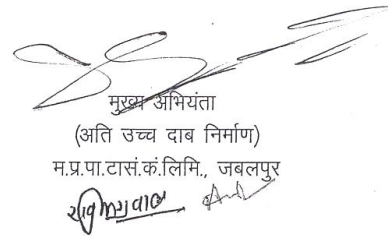 मुख्य अभियंता
(अति उच्च दाब निर्माण)
म.प्र.पा.टासं.कं.लिमि., जबलपुर